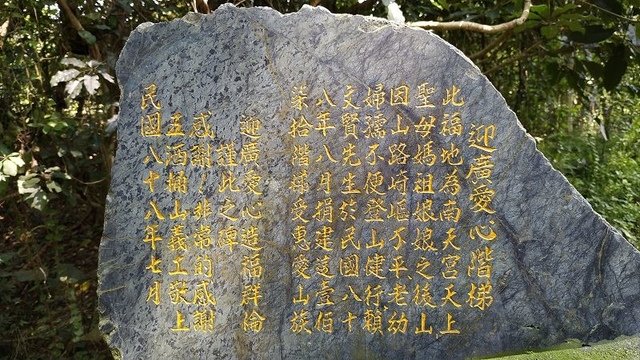 迎廣愛心階梯
此福地為南天宮天上
聖母媽祖娘娘之後山
因山路崎嶇不平老幼
婦孺不便登山健行賴
文賢先生於民國八十
八年八月捐建造壹佰
柒拾階梯受惠愛山族
迎廣愛心造福群倫
謹此之碑
感謝！非常的感謝
五酒桶山義工敬上
民國八十八年七月